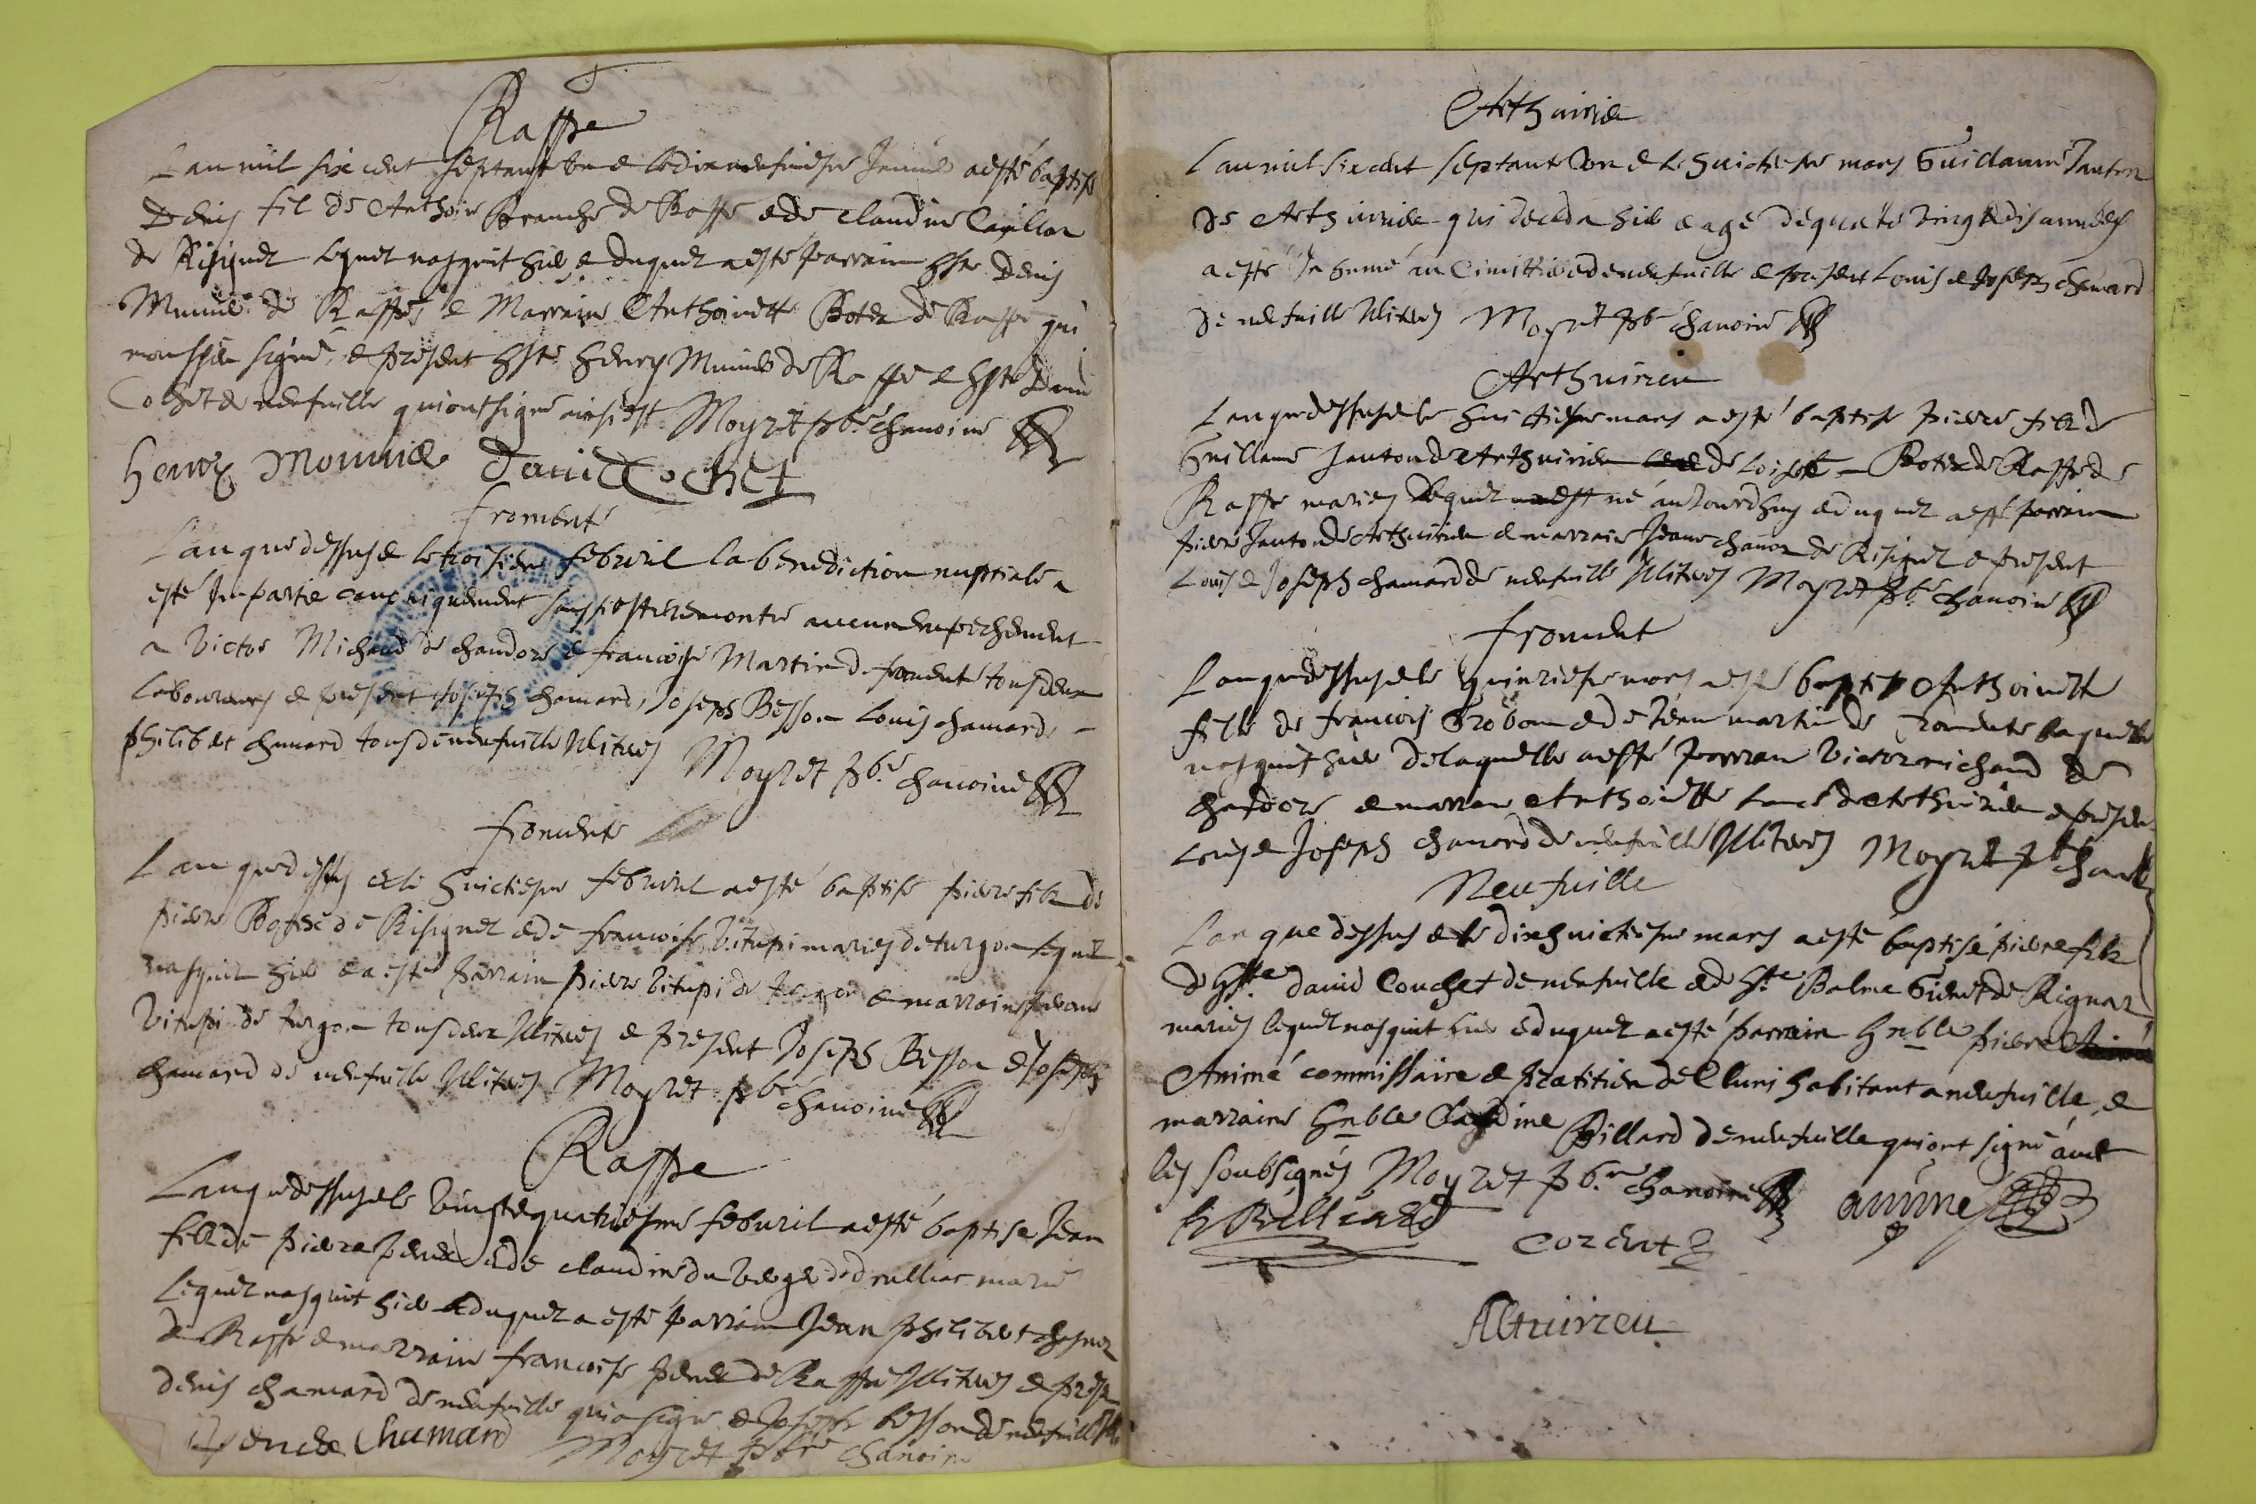 Raffe
L an mil six cent septante un e le dixneufuiesme Januier a esté baptisé
Denis fil de Anthoine Branche de Raffe e de Claudine Caillon
de Risignel lequel nasquit hier, e duquel a esté parrain hste Denis
Munier de Raffe, e Marraine Anthoinette Boter de Raffe qui
e présent hste henry Munier de Raffe e hste Dauid
Cochet de neufuille qui ont signé ainsi est Moyret pbre chanoine
henry Mounier Dauid Cochet
fromente
L an que dessus e le troisieme febvril la benediction nuptiale a
esté Impartie canoniquement aucun empechement
a Victor Michaud de chandore e francoise Martin de fromente tous deux
Laboureurs e present Joseph chamard, Joseph Besson Louis chamard,
philibert chamard tous de neufuille Illiteres Moyret pbre chanoine
fromente
L an que dessus e le huictiesme febvril a esté baptisé pierre filz de
pierre de Risignel e de francoise Vitupi mariés de turgon lequel
nasquit hier e a esté parrain pierre Vitupi de turgon e marraine
Vitupi de turgon tous deux Illiteres e present Joseph Besson e Joseph
chamard de neufuille Illiteres Moyret pbre chanoine
Raffe
L an que dessus e le vingtequatriesme febvril a esté baptisé Jean
filz de pierre e de claudine du Verge de drullias mariés
lequel nasquit hier e duquel a esté parrain Jean philibert
de Raffe e marraine francoise de Raffe Illiteres e present
denis chamard de neufuille qui a signé e Joseph besson de neufuille
Chamard Moyret pbre chanoine
Arthuirieu
L an mil six cent septante un e le huictiesme mars Guillaume Janton
de Arthuirieu qui deceda hier e agé de quatre vingt e dix années
a esté Inhumé au Cimittiere de neufuille e present Louis e Joseph chamard
de neufuille Illiteres Moyret pbre chanoine
Arthuirieu
L an que dessus e le huictiesme mars a esté baptisé pierre filz de
Guillaume Janton de Arthuirieu e de Loise Boter de Raffe de
Raffe mariés lequel est né aujourdhuy e duquel a esté parrain
pierre Janton de Arthuirieu e marraine Jeane chanon de Risignel e present
Louis e Joseph chamard de neufuille Illiteres Moyret pbre chanoine
froment
L an que dessus e le quinziesme mars a esté baptisé Anthoinette
fille de francois e de Jeane martin de fromente laquelle
nasquit hier de laquelle a esté parrain Victor michaud de
chandore e marraine Anthoinette de Arthuirieu e present
Louis e Joseph chamard de neufuille Illiteres Moyret pbre chan
Neufuille
L an que dessus e le dixhuictiesme mars a esté baptisé pierre filz
de hste dauid Couchet de neufuille e de hste Balme Guenet de Rignat
mariés lequel nasquit hier e duquel a esté parrain hnble pierre
Animé commissaire e pratitien de Cluni habitant a neufuille, e
marraine hnble Claudine Billard de neufuille qui ont signé auec
les soubsignés Moyret pbre chanoine anime
C Billiard corent
Altuirieu